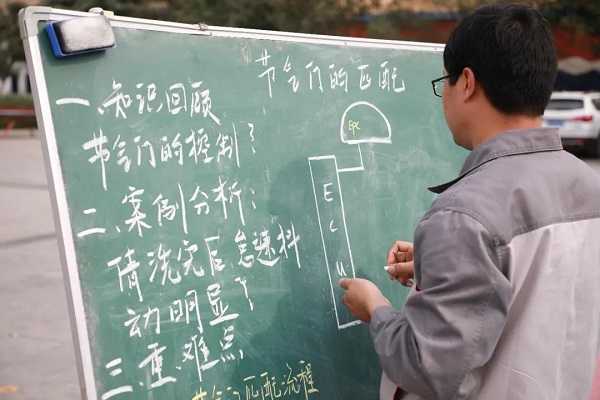 节气门的匹配
一、知识回顾
节气门的控制?
二、案例分析:
清洗完后怠速抖
动明显?
三、重、难点
节气门匹配流程
EPC
E
C
U